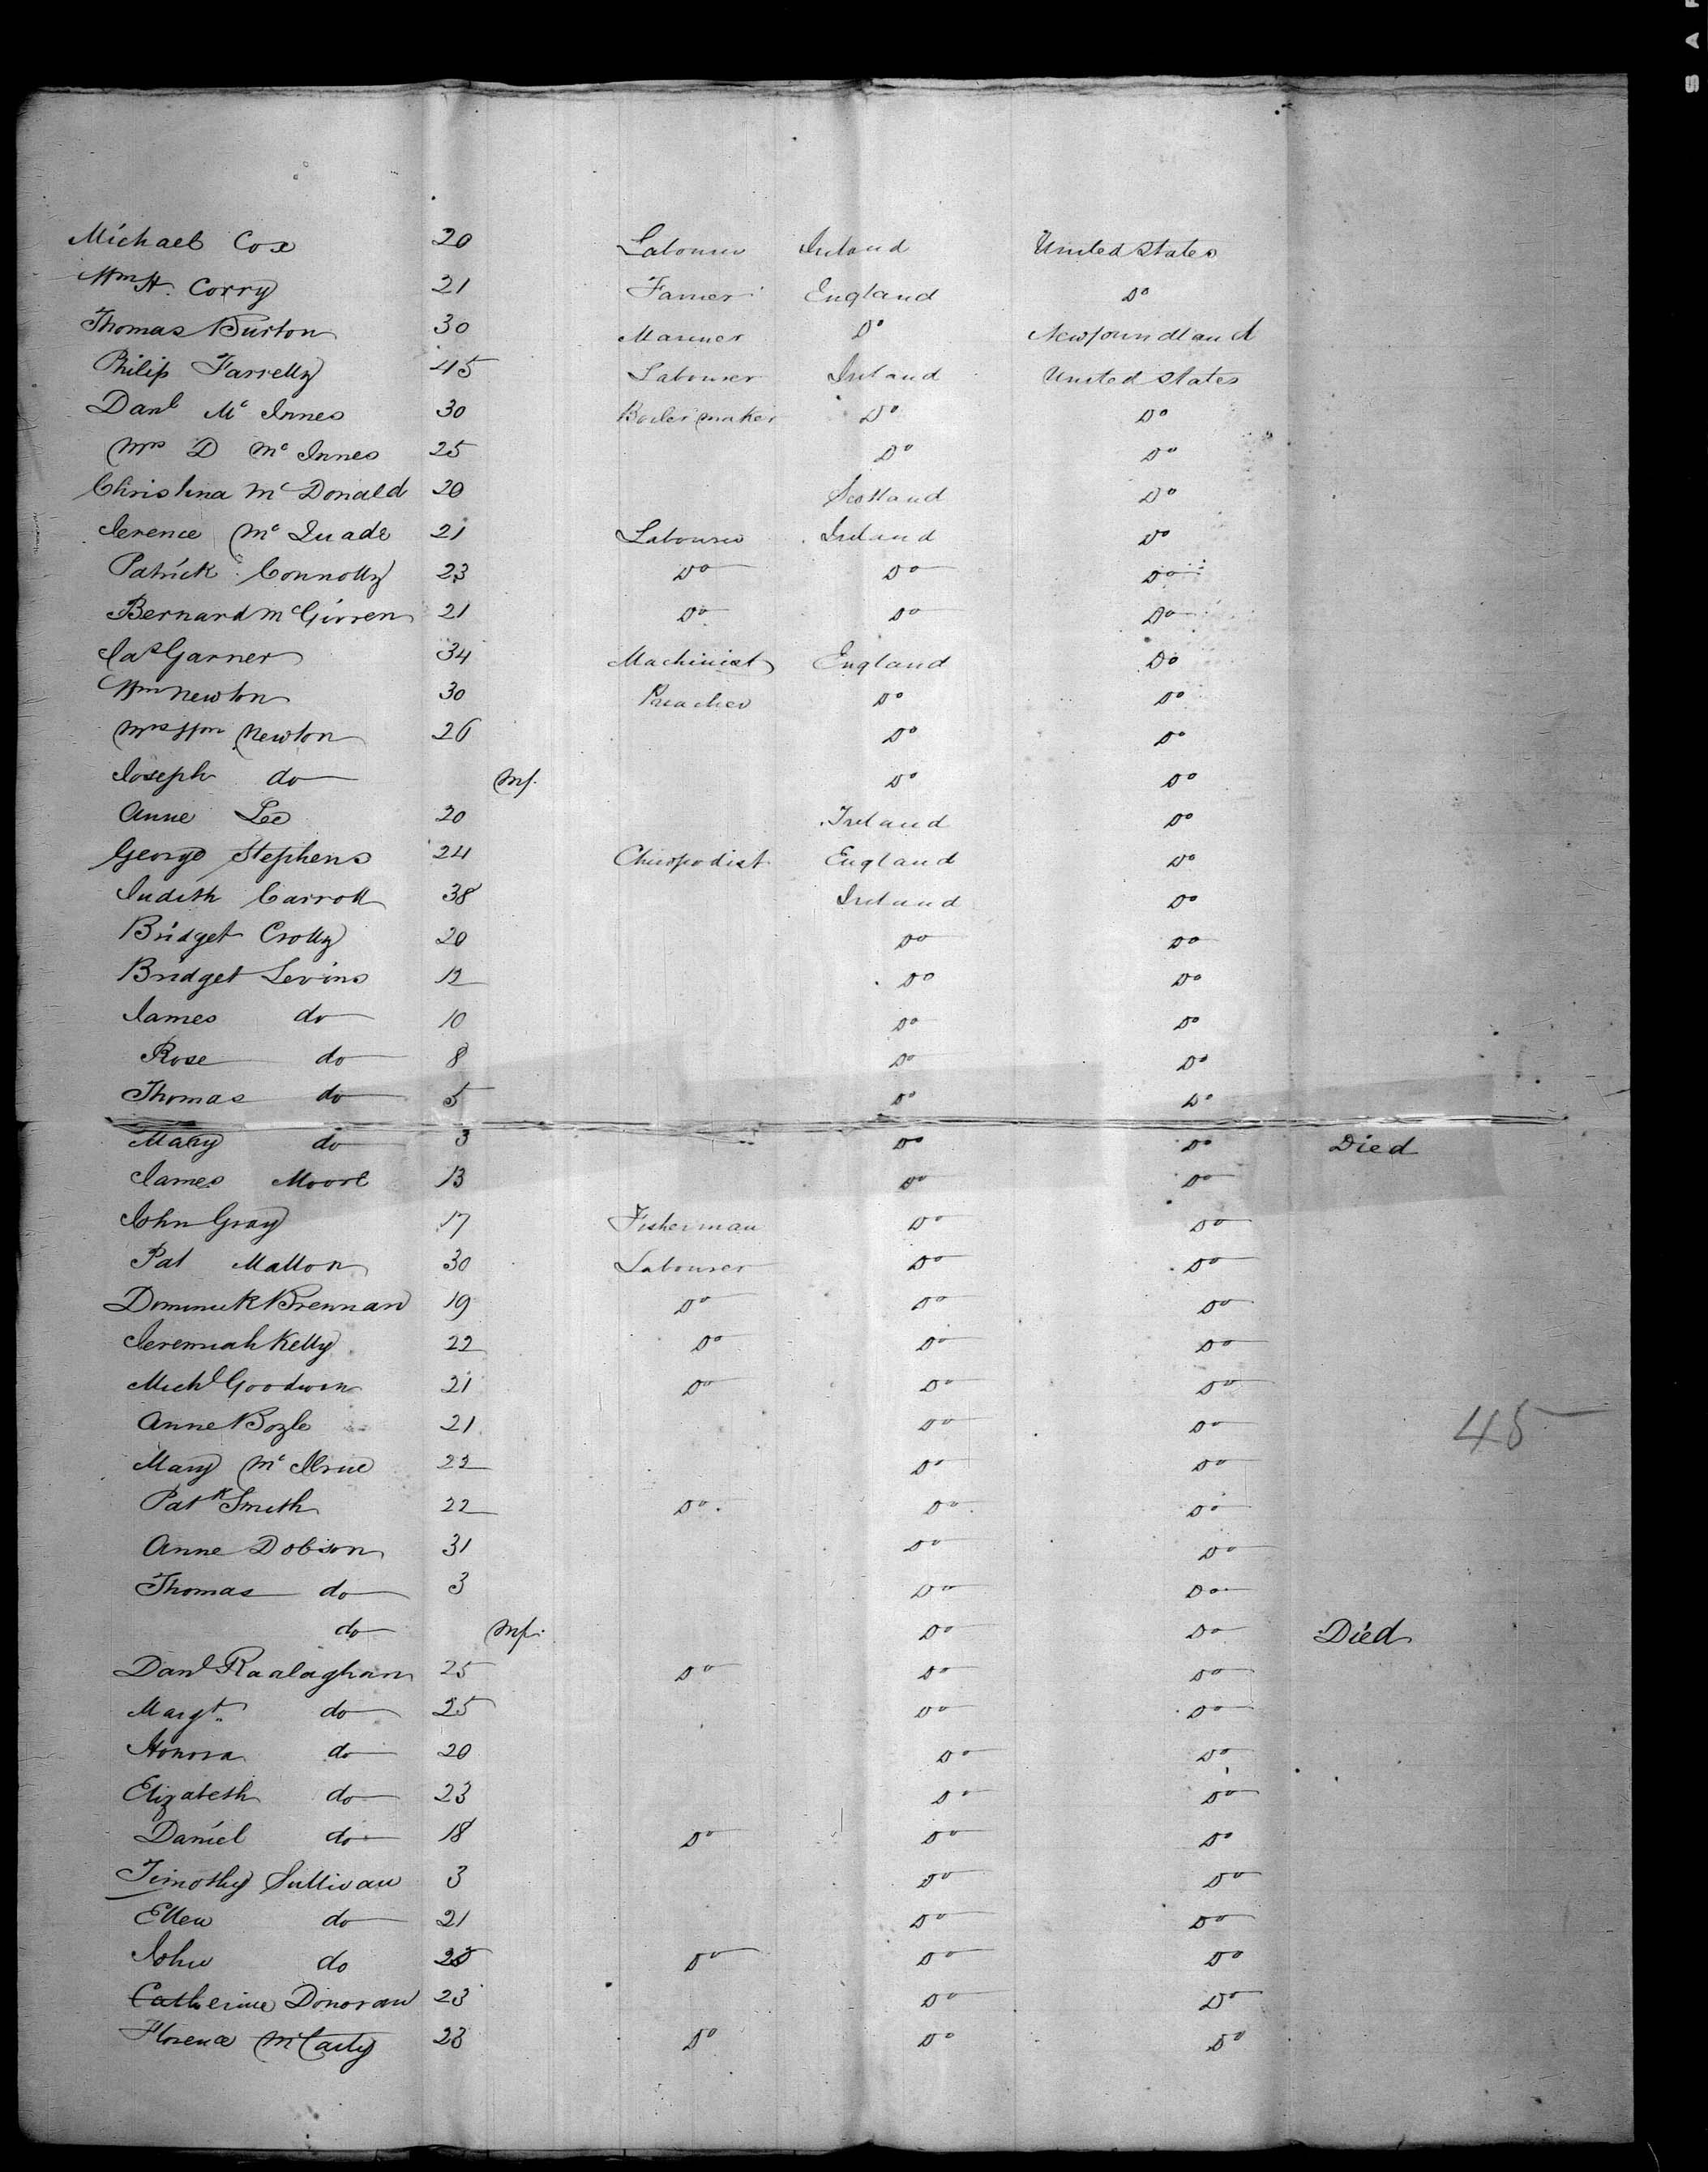 S A F
Michael Cox 20 Labourer Ireland United States
Wm H. Corry 21 Farmer England Do
Thomas Burton 30 Mariner Do Newfoundland
Philip Farrelly 45 Labourer Ireland United States
Danl Mc Innes 30 Boiler maker Do Do
Mrs D Mc Innes 25 Do Do
Christina Mc Donald 20 Scotland Do
Terence Mc Quade 21 Labourer Ireland Do
Patrick Connolly 23 Do Do Do
Bernard McGirren 21 Do Do Do
Jas Garner 34 Machinist England Do
Wm Newton 30 Preacher Do Do
Mrs Wm Newton 26 Do Do
Joseph do Inf. Do Do
Anne Lee 20 Ireland Do
George Stephens 24 Chiropodist England Do
Judith Carroll 38 Ireland Do
Bridget Crolly 20 Do Do
Bridget Levins 12 Do Do
James do 10 Do Do
Rose do 8 Do Do
Thomas do 5 Do Do
Mary do 3 Do Do Died
James Moore 13 Do Do
John Gray 17 Fisherman Do Do
Pat Mallon 30 Labourer Do Do
Dominick Brennan 19 Do Do Do
Jeremiah Kelly 22 Do Do Do
Michl Goodwin 21 Do Do Do
Anne Boyle 21 Do Do
45
Mary Mc 22 Do Do
Patk Smith 22 Do Do Do
Anne Dobson 31 Do Do
Thomas do 3 Do Do
do Inf. Do Do Died
Danl Raalaghan 25 Do Do Do
Margt. do 25 Do Do
Honora do 20 Do Do
Elizabeth do 23 Do Do
Daniel do 18 Do Do Do
Timothy Sullivan 3 Do Do
Ellen do 21 Do Do
John do 25 Do Do Do
Catherine Donovan 23 Do Do
Florence McCarty 23 Do Do Do